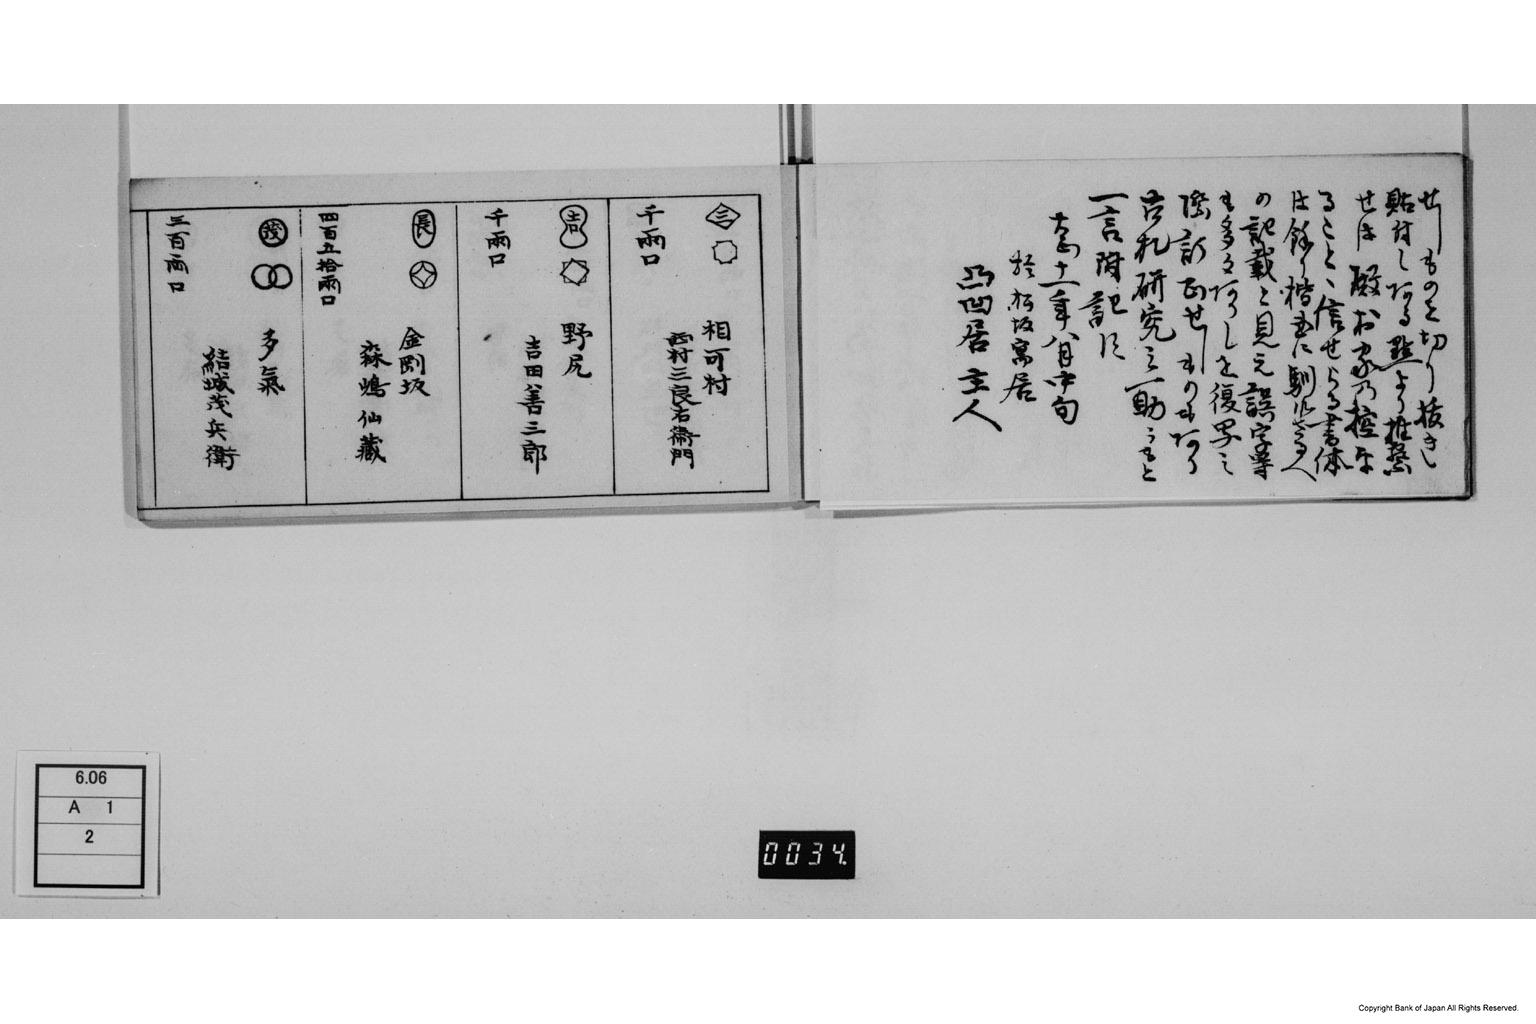 せしものを切り抜きし
貼付しある點より推察
せは殿お家乃控な
ることゝ信せらる書体
は餘り楷書に馴れさる人
の記載と見え誤字等
も多々ありしを復写之
際訂正せしものもあり
古札研究之一助にもと
一言附記す
大正十一年八月中旬
於松坂寓居
凸凹居主人
三
千両口
相可村
西村三良右衛門
吉
千両口
野尻
吉田善三郎
長
四百五拾両口
金剛坂
森嶋仙藏
茂
三百両口
多氣
結城茂兵衛
6.06
A 1
2
0034
Copyright Bank of Japan All Rights Reserved.